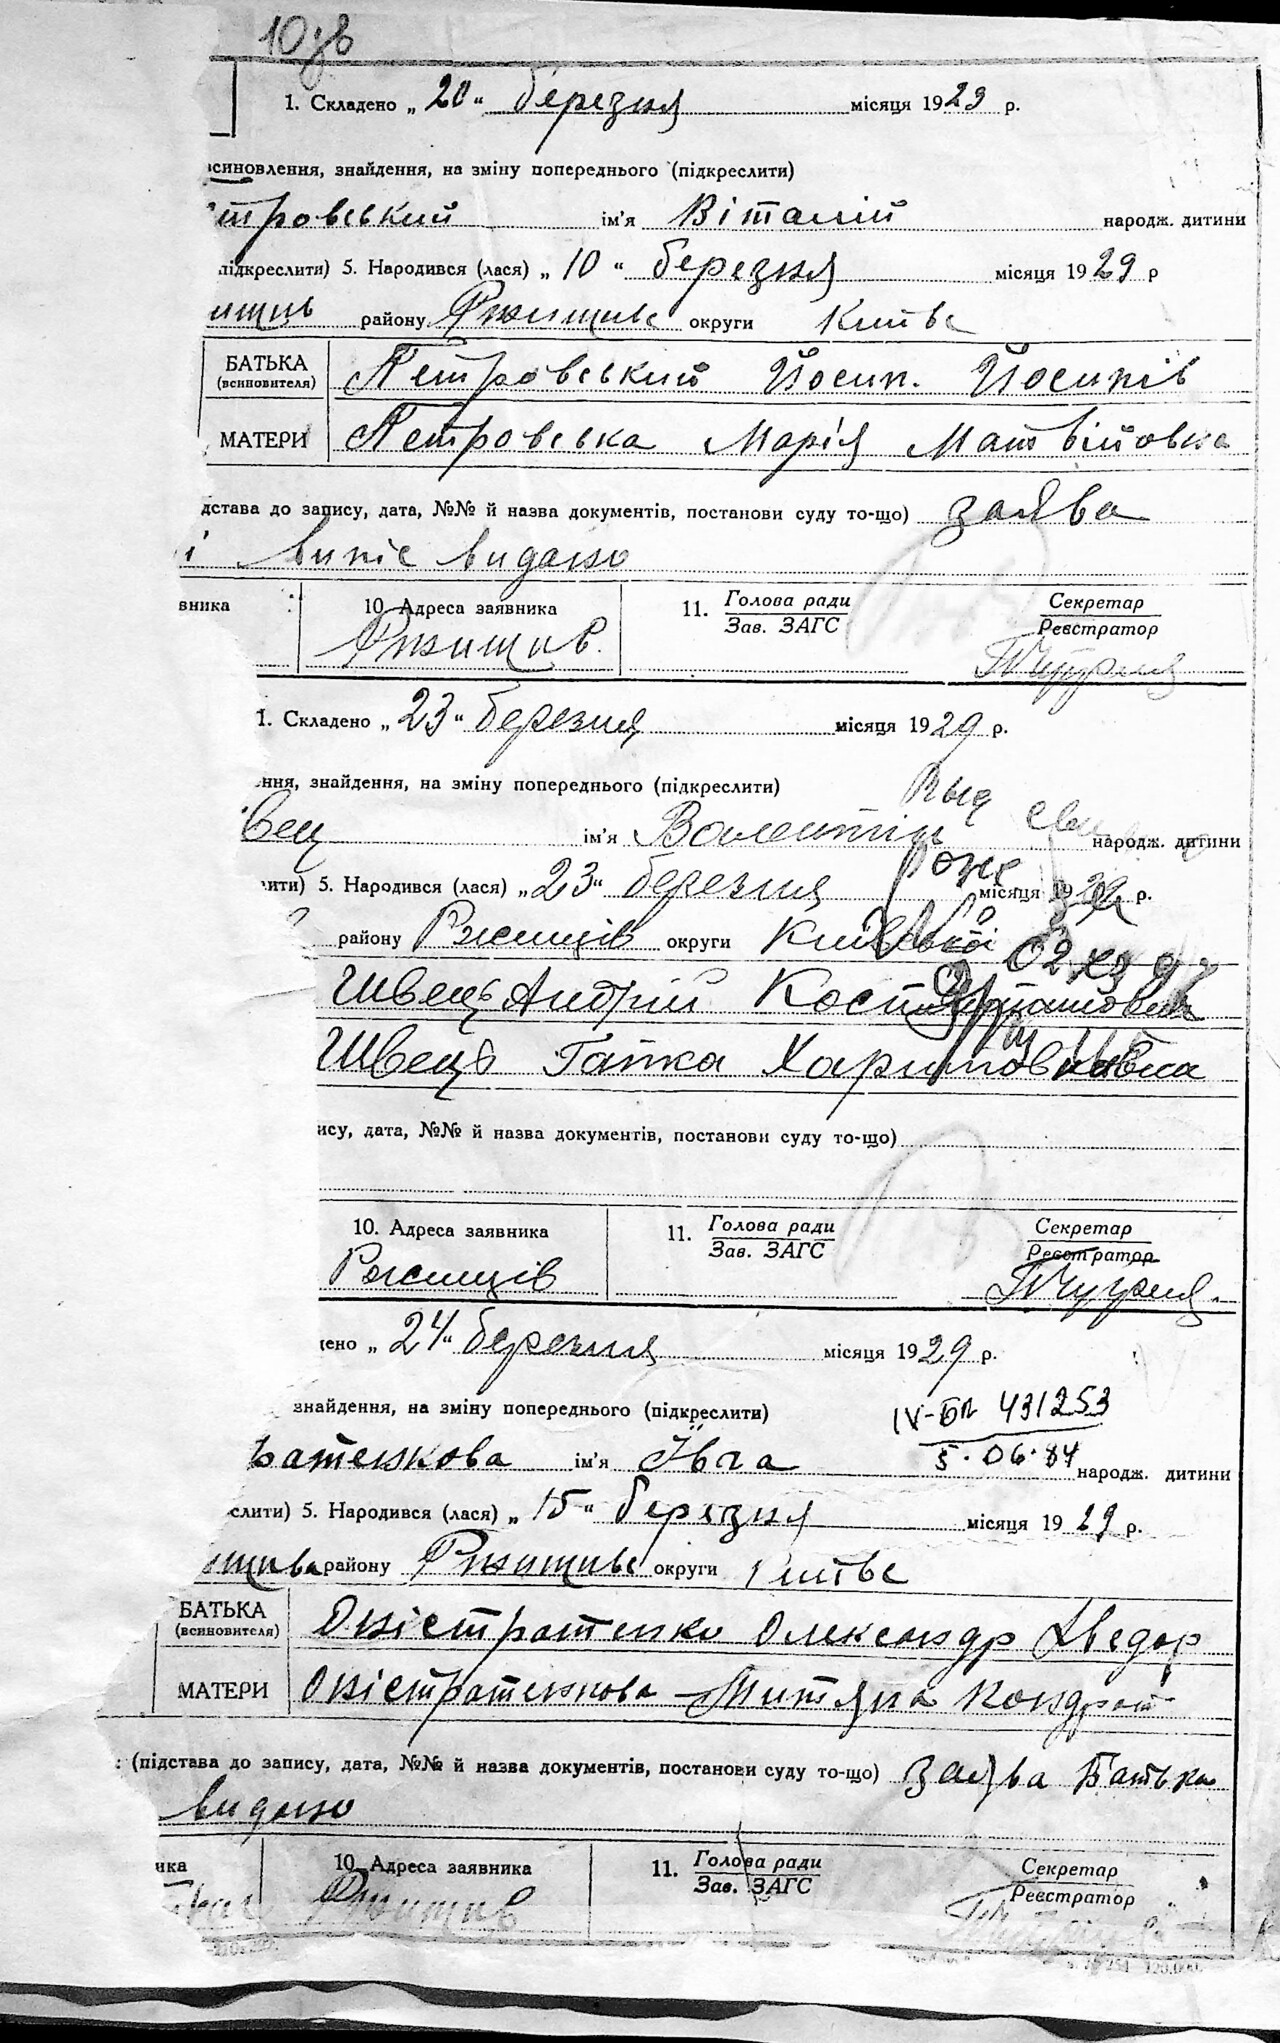 10зв
1. Складено „ 20 “ березня місяця 1929 р.
всиновлення, знайдення, на зміну попереднього (підкреслити)
тровський ім'я Віталій народж. дитини
підкреслити) 5. Народився (лася) „ 10 “ березня місяця 1929 р
ищів району Ржищівс округи Київс
БАТЬКА Петровський Йосип. Йосипів
(всиновителя)
МАТЕРИ Петровська Марія Матвійовна
дстава до запису, дата, №№ й назва документів, постанови суду то-що) заява
і випіс видано
вника 10. Адреса заявника 11. Голова ради Секретар
Зав. ЗАГС Реєстратор
Ржищів.
1. Складено „ 23 “ березня місяця 1929 р.
ння, знайдення, на зміну попереднього (підкреслити)
вец ім'я Валентін народж. дитини
ити) 5. Народився (лася) „ 23 “ березня місяця 1929 р.
району Ржищів округи Київської
Швець Андрій
Швець Гапка Харитовновна
ису, дата, №№ й назва документів, постанови суду то-що)
10. Адреса заявника 11. Голова ради Секретар
Зав. ЗАГС Реєстратор
Ржищів
ено „ 24 “ березня місяця 1929 р.
знайдення, на зміну попереднього (підкреслити) IV-БП 431253
5.06.84
ратенкова ім'я Ївга народж. дитини
слити) 5. Народився (лася) „ 15 “ березня місяця 1929 р.
ищива району Ржищивс округи Київс
БАТЬКА Оністратенко Олександр Хведор
(всиновителя)
МАТЕРИ Оністратенкова Митяна Кондрат
: (підстава до запису, дата, №№ й назва документів, постанови суду то-що) заява Батька
видано
ика 10. Адреса заявника 11. Голова ради Секретар
Зав. ЗАГС Реєстратор
Ржищив